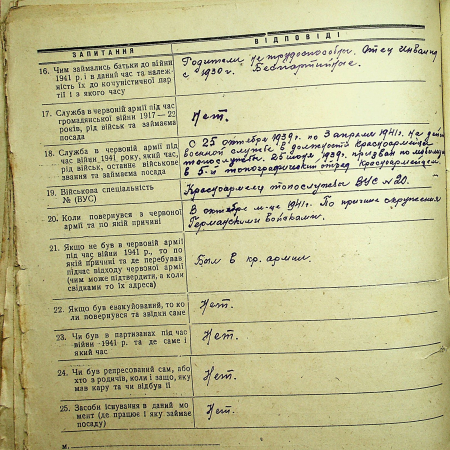 ЗАПИТАННЯ
ВІДПОВІДІ
16. Чим займались батьки до війни
1941 р. і в даний час та належ-
ність їх до комуністичної пар-
тії і з якого часу
Родители не трудоспособн. Отец инвалид
с 1930 г. Беспартийные.
17. Служба в червоній армії під час
громадянської війни 1917—22
років, рід військ та займаєма
посада
Нет.
18. Служба в червоній армії під
час війни 1941 року, який час,
рід військ, останнє військове
звання та займаєма посада
С 25 октября 1939 г. по 3 апреля 1941 г. На дей
военной службе в должности красноармейца
топослужбы. 26 июля 1939 г. призван по мобилиза
в 5-й топографический отряд Красноармейцем.
19. Військова спеціальність
№ (ВУС)
Красноармеец топослужбы ВУС №20.
20. Коли повернувся з червоної
армії та по якій причині
В октябре м-це 1941 г. По причине окружения
Германскими войсками.
21. Якщо не був в червоній армії
під час війни 1941 р., то по
якій причині та де перебував
під час відходу червоної армії
(чим може підтвердити, а коли
свідками то їх адреса)
Был в кр. армии.
22. Якщо був евакуйований, то ко-
ли повернувся та звідки саме
Нет.
23. Чи був в партизанах під час
війни 1941 р. та де саме і
який час
Нет.
24. Чи був репресований сам, або
хто з родичів, коли і защо, яку
мав кару та чи відбув її
Нет.
25. Засоби існування в даний мо-
мент (де працює і яку займає
посаду)
Нет.
м.